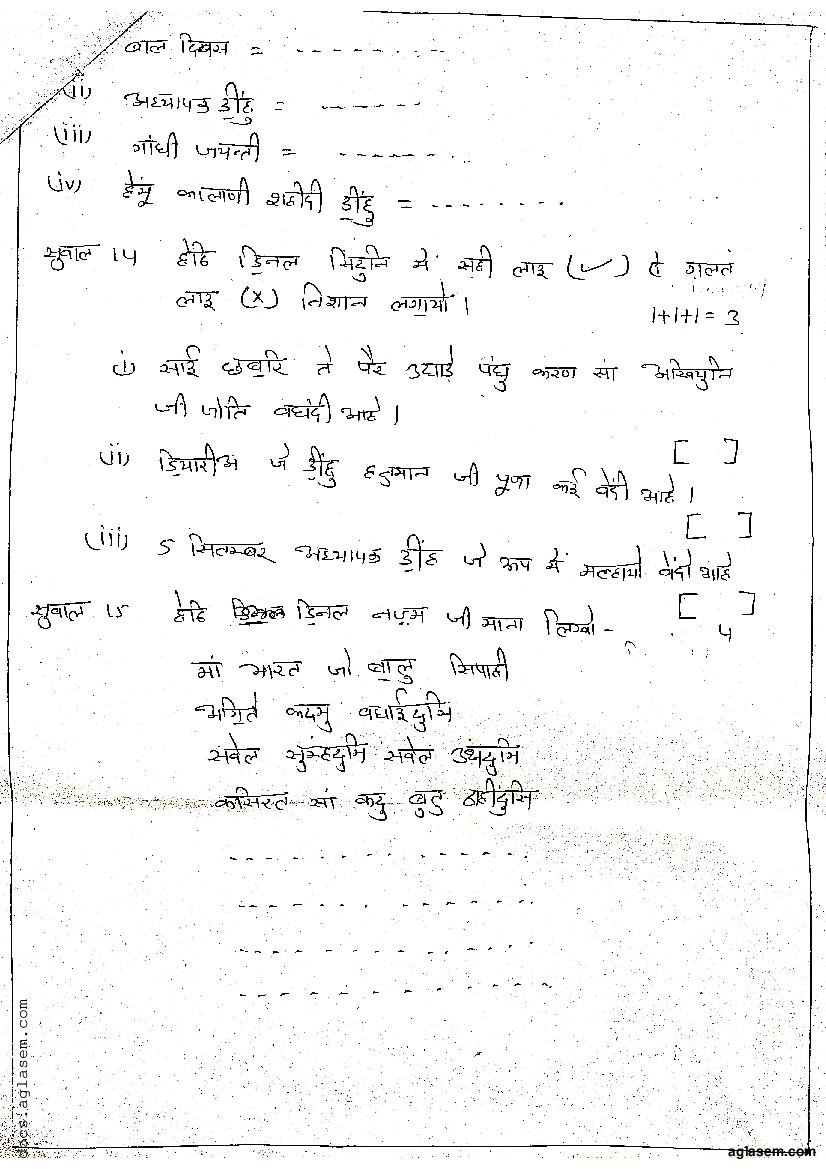 बाल दिवस = - - - - - - - -
(ii) अध्यापक ॾींहु = - - - - - -
(iii) गांधी जयन्ती = - - - - - - - -
(iv) हेमू कालाणी शहीदी ॾींहु = - - - - - - - -
सुवाल 14 हेठि ॾिनल सिटुनि में सही लाइ (✓) ऐं ग़लत
लाइ (x) निशान लॻायो।
1+1+1 = 3
i) साई छॿरि ते पैर उघाड़े पंधु करण सां अखियुनि
जी जोति वधंदी आहे।
[ ]
ii) ॾियारीअ जे ॾींहु हनुमान जी पूजा कई वेंदी आहे।
[ ]
(iii) 5 सितम्बर अध्यापक ॾींहं जे रूप में मल्हायो वेंदो आहे
[ ]
सुवाल 15 हेठि ॾिनल नज़्म जी माना लिखो -
4
मां भारत जो ॿालु सिपाही
अॻिते कदमु वधाईंदुसि
सवेल सुम्हंदुमि सवेल उथंदुमि
कसिरत सां कदु ॿुतु ठाहींदुसि
- - - - - - - - - - - - - -
- - - - - - - - - - - - - -
- - - - - - - - - - - - - -
- - - - - - - - - - - - - -
docs.aglasem.com
aglasem.com